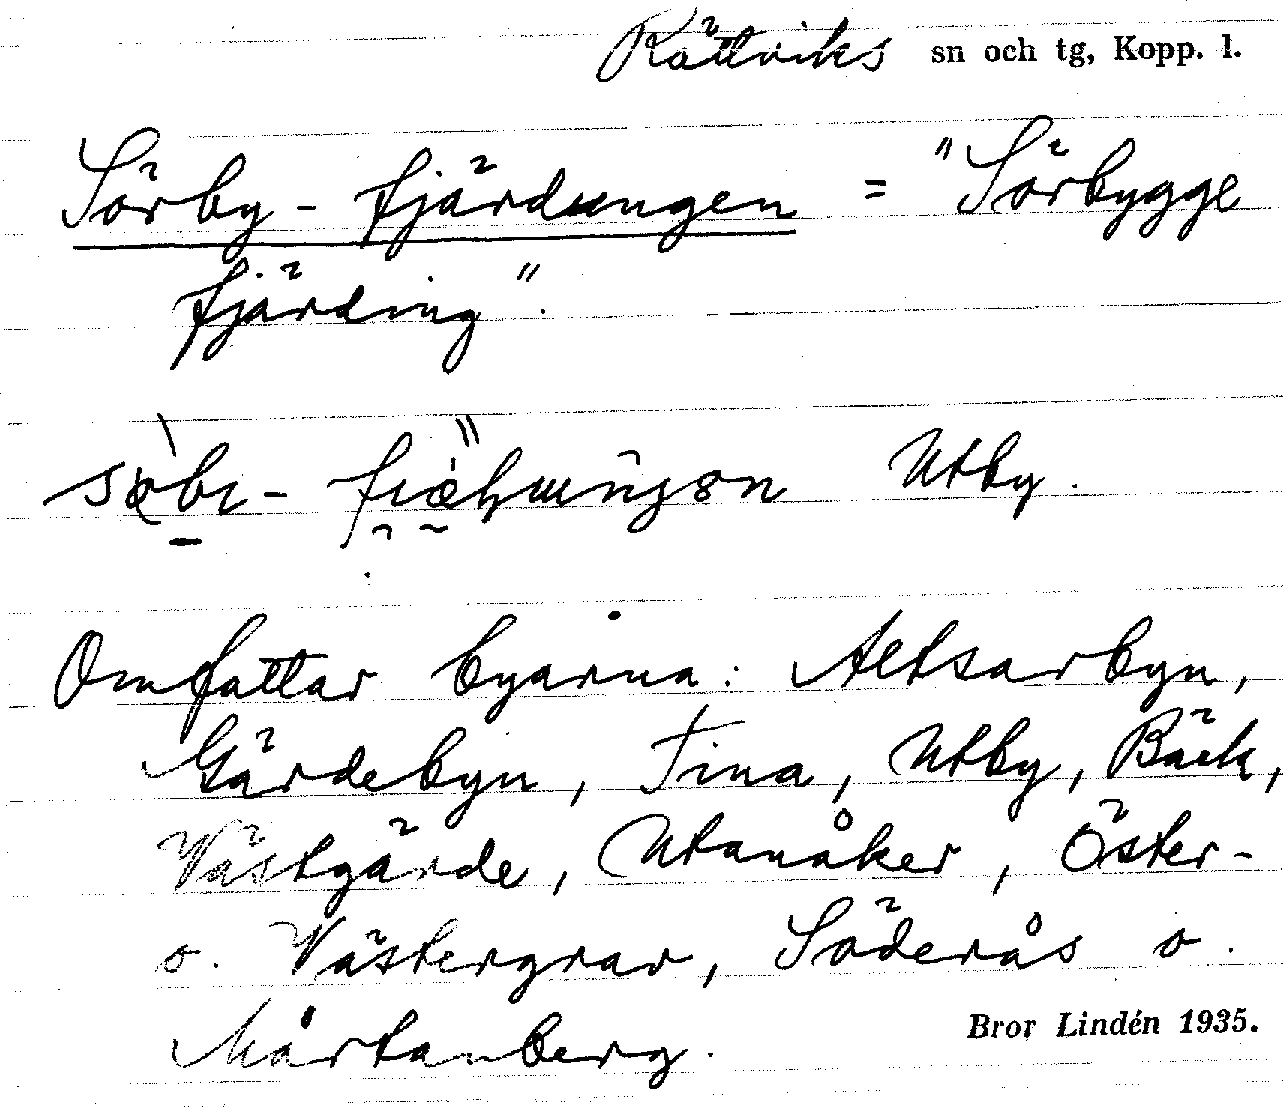 Rättviks sn och tg, Kopp. l.
Sörby-fjärdungen = "Sörbygge
fjärding".
Utby.
Omfattar byarna: Altsarbyn,
Gärdebyn, Tina, Utby, Bäck,
Västgärde, Utanåker, Öster-
o. Västergrav, Söderås o.
Mårtanberg.
Bror Lindén 1935.